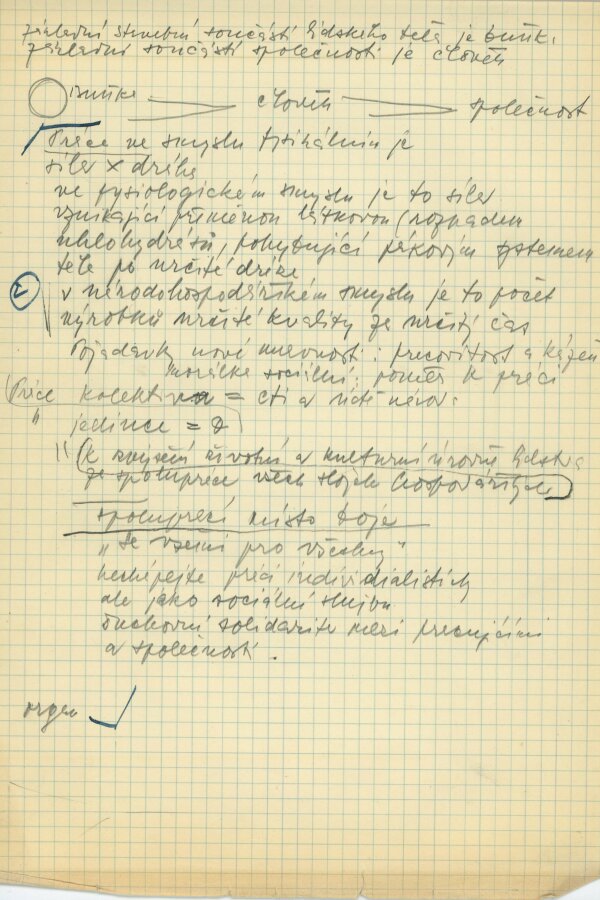 základní stavební součástí lidského těla je buňk.
základní součástí společnosti je člověk
Buňka člověk společnost
Práce ve smyslu fysikálním je
síla × dráha
ve fysiologickém smyslu je to síla
vznikající přeměnou látkovou (rozpadem
uhlohydrátů, pohybující pákovým systemem
těla po určité dráze
v národohospodářském smyslu je to počet
výrobků určité kvality za určitý čas
Požadavky nové mravnosti: pracovitost a kázeň
morálka sociální: poměr k práci
Práce kolektivu = čti a
" jedince =
" (k zvýšení životní a kulturní úrovně lidstva
za spolupráce všech složek hospodářských)
spoluprací místo boje
„Se všemi pro všechny"
nechápejte práci individialisticky
ale jako sociální službu
duchovní solidarita mezi pracujícími
a společností.
orgán